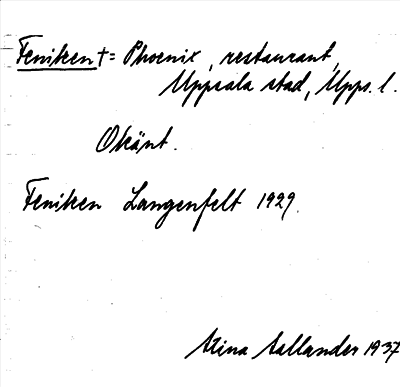 Feniken †= Phoenix, restaurant,
Uppsala stad, Upps. l.
Okänt.
Feniken Langenfelt 1929.
Stina Sallander 1937